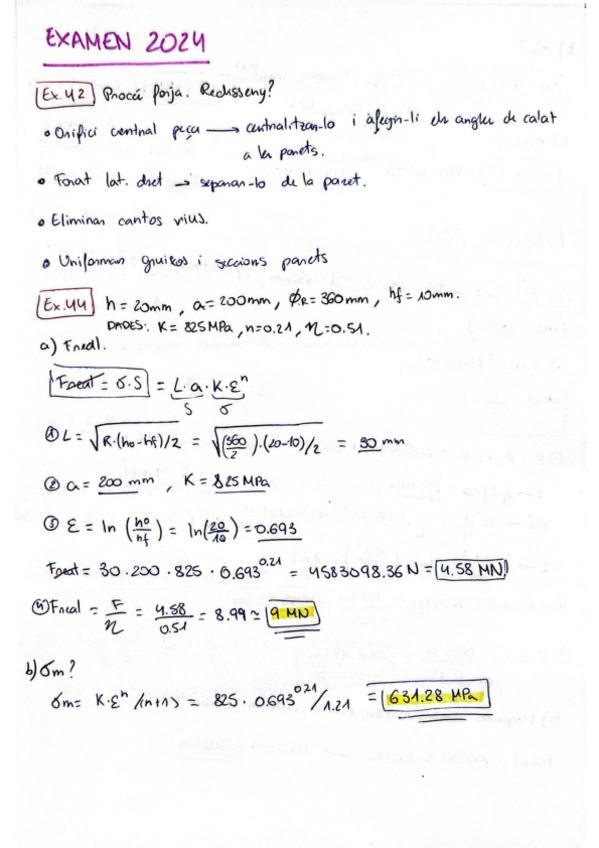 EXAMEN 2024
Ex.42 Procés forja. Redisseny?
• Orifici central peça → centralitzar-lo i afegir-li els angles de calat
a les parets.
• Forat lat. dret → separar-lo de la paret.
• Eliminar cantos vius.
• Uniformar gruixos i seccions parets
Ex.44 h = 20mm, a = 200mm, ϕR = 360mm, hf = 10mm.
DADES: K = 825MPa, n=0.21, η=0.51.
a) Freal.
Freal = σ·S = L·a·K·ε^n
S σ
① L = √R·(ho-hf)/2 = √(360/2)·(20-10)/2 = 30 mm
② a = 200 mm, K = 825 MPa
③ ε = ln (ho/hf) = ln(20/10) = 0.693
Freal = 30·200·825·0.693^0.21 = 4583098.36 N = 4.58 MN
④ Freal = F/η = 4.58/0.51 = 8.99 ≈ 9 MN
b) σm?
σm = K·ε^n /(n+1) = 825·0.693^0.21/1.21 = 631.28 MPa